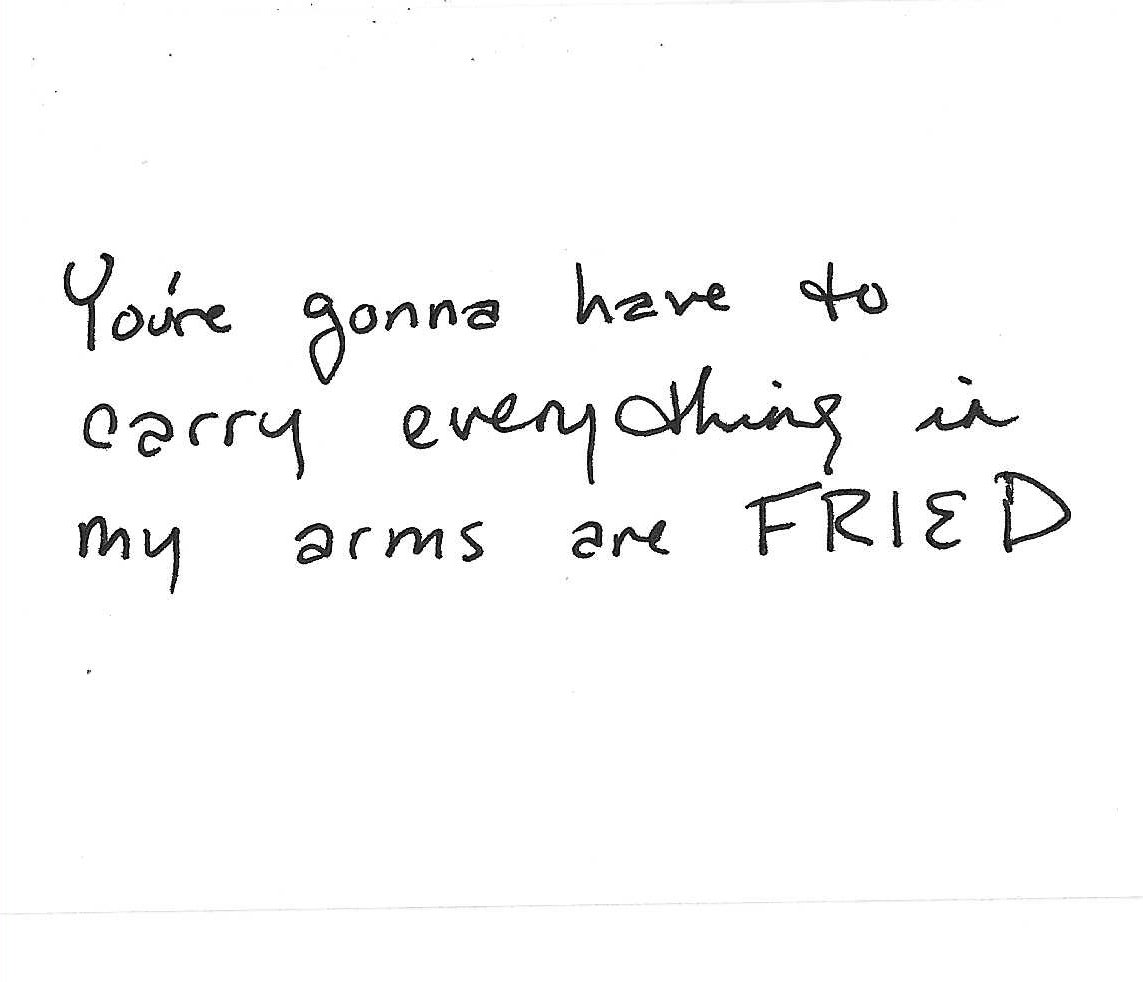 You're gonna have to
carry everything in
my arms are FRIED